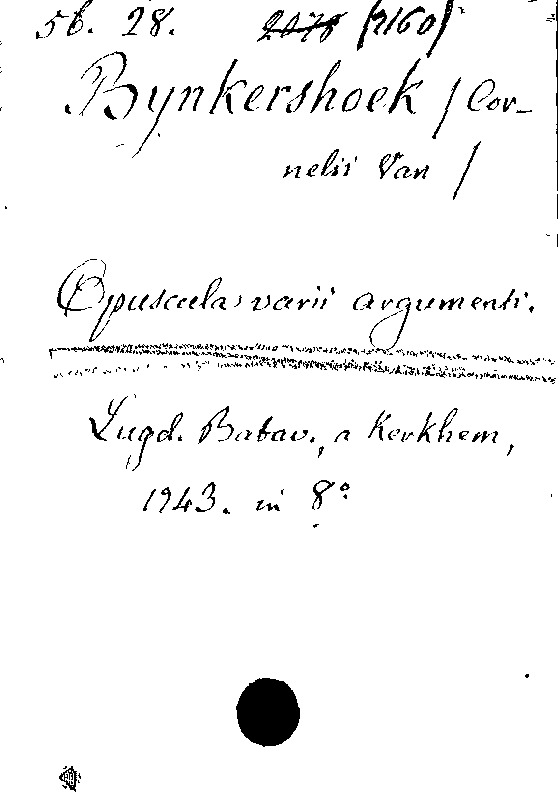 5b. 28. 2078 (2160)
Bynkershoek / Cor-
nelii Van /
Opuscula varii argumenti.
Lugd. Batav., a Kerkhem,
1943. in 8°